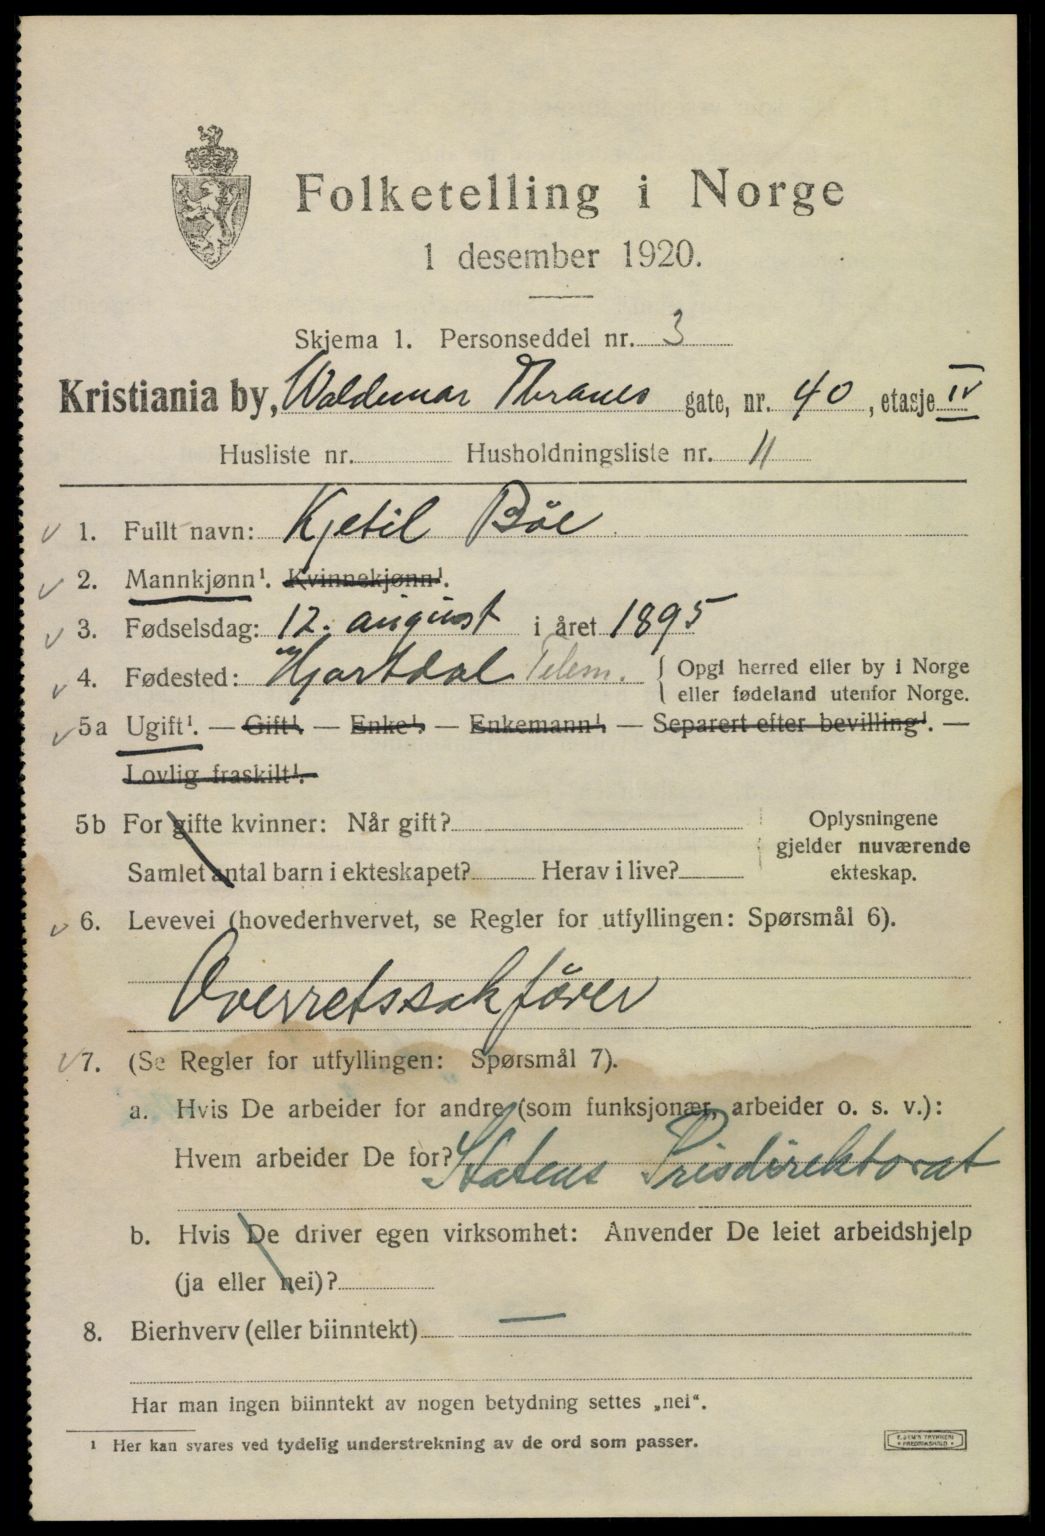 Folketelling i Norge
1 desember 1920.
Skjema 1. Personseddel nr. 3
Kristiania by, Waldemar Thranes gate, nr. 40, etasje IV
Husliste nr. Husholdningsliste nr. 11
1. Fullt navn: Kjetil Böe
2. Mannkjønn¹. Kvinnekjønn¹.
3. Fødselsdag: 12. august i året 1895
4. Fødested: Hjartdal Telem. { Opgi herred eller by i Norge
eller fødeland utenfor Norge.
5a Ugift¹. — Gift¹. — Enke¹. — Enkemann¹. — Separert efter bevilling¹. —
Lovlig fraskilt¹.
5b For gifte kvinner: Når gift? Oplysningene
gjelder nuværende
Samlet antal barn i ekteskapet? Herav i live? ekteskap.
6. Levevei (hovederhvervet, se Regler for utfyllingen: Spørsmål 6).
Overretssakförer
7. (Se Regler for utfyllingen: Spørsmål 7).
a. Hvis De arbeider for andre (som funksjonær, arbeider o. s. v.):
Hvem arbeider De for? Statens Prisdirektorat
b. Hvis De driver egen virksomhet: Anvender De leiet arbeidshjelp
(ja eller nei)?
8. Bierhverv (eller biinntekt) —
Har man ingen biinntekt av nogen betydning settes „nei“.
¹ Her kan svares ved tydelig understrekning av de ord som passer.